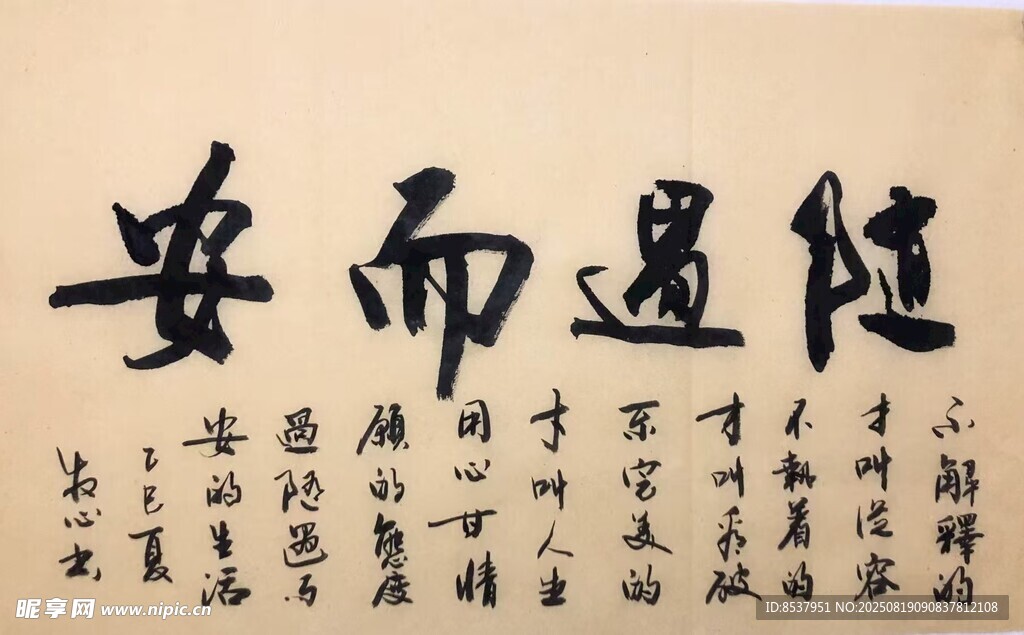 随遇而安
不解釋的
才叫從容
不執着的
才叫看破
不完美的
才叫人生
用心甘情
願的態度
過隨遇而
安的生活
乙巳夏
牧心书
昵享网 www.nipic.cn
ID:8537951 NO:20250819090837812108